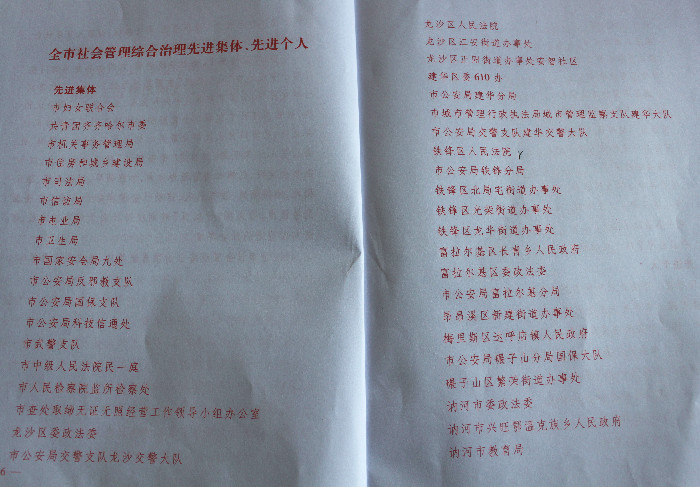 全市社会管理综合治理先进集体、先进个人
先进集体
市妇女联合会
共青团齐齐哈尔市委
市机关事务管理局
市住房和城乡建设局
市司法局
市信访局
市畜牧局
市卫生局
市国家安全局九处
市公安局反邪教支队
市公安局国保支队
市公安局科技信通处
市武警支队
市中级人民法院民一庭
市人民检察院监所检察处
市查处取缔无证无照经营工作领导小组办公室
龙沙区委政法委
市公安局交警支队龙沙交警大队
6—
龙沙区人民法院
龙沙区江安街道办事处
龙沙区正阳街道办事处安智社区
建华区委610办
市公安局建华分局
市城市管理行政执法局城市管理监察支队建华大队
市公安局交警支队建华交警大队
铁锋区人民法院
市公安局铁锋分局
铁锋区北局宅街道办事处
铁锋区光荣街道办事处
铁锋区龙华街道办事处
富拉尔基区长青乡人民政府
富拉尔基区委政法委
市公安局富拉尔基分局
昂昂溪区新建街道办事处
梅里斯区达呼店镇人民政府
市公安局碾子山分局国保大队
碾子山区繁荣街道办事处
讷河市委政法委
讷河市兴旺鄂温克族乡人民政府
讷河市教育局